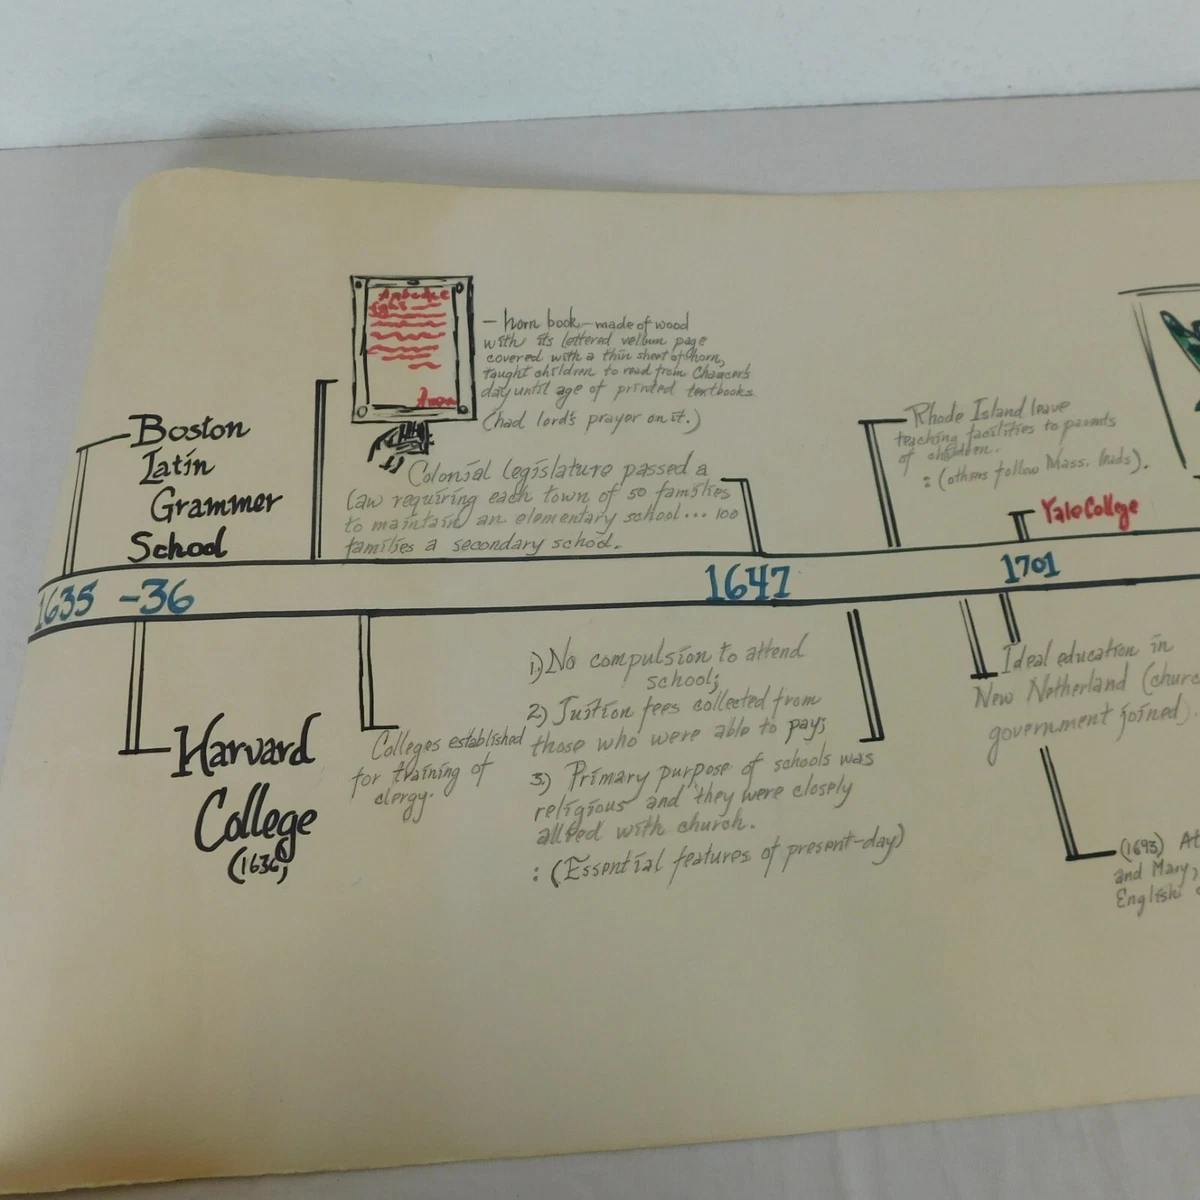 Boston
Latin
Grammer
School
- horn book - made of wood
with its lettered vellum page
covered with a thin sheet of horn,
taught children to read from Chaucer's
day until age of printed textbooks
(had lord's prayer on it.)
Colonial legislature passed a
law requiring each town of 50 families
to maintain an elementary school... 100
families a secondary school.
Rhode Island leave
teaching facilities to parents
of children.
: (others follow Mass. leads).
Yale College
1635 -36
1647
1701
Harvard
College
(1636)
Colleges established
for training of
clergy.
1.) No compulsion to attend
school;
2.) Tuition fees collected from
those who were able to pay;
3.) Primary purpose of schools was
religious and they were closely
allied with church.
: (Essential features of present-day)
Ideal education in
New Netherland (churc
government joined).
(1693) At
and Mary,
English